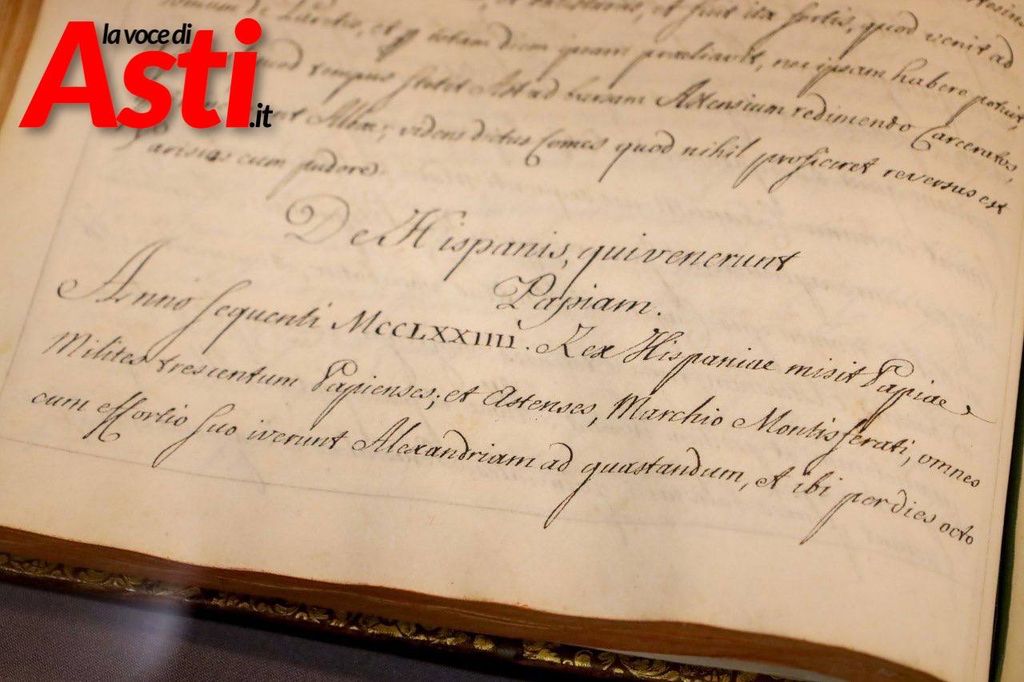 la voce di
Asti.it
et fuit ita fortis, quod venit ad
diem quam præliavit, nec ipsam habere potuit,
quod tempus stetit Ast ad bursam Astensium redimendo Carceratos,
Alba; videns dictus Comes quod nihil proficeret reversus est
Parisias cum pudore.
De Hispanis, qui venerunt
Papiam.
Anno sequenti MCCLXXIIII. Rex Hispaniae misit Papiae
Milites trescentum Papienses; et Astenses, Marchio Montisferati, omnes
cum effortio suo iverunt Alexandriam ad guastandum, et ibi per dies octo